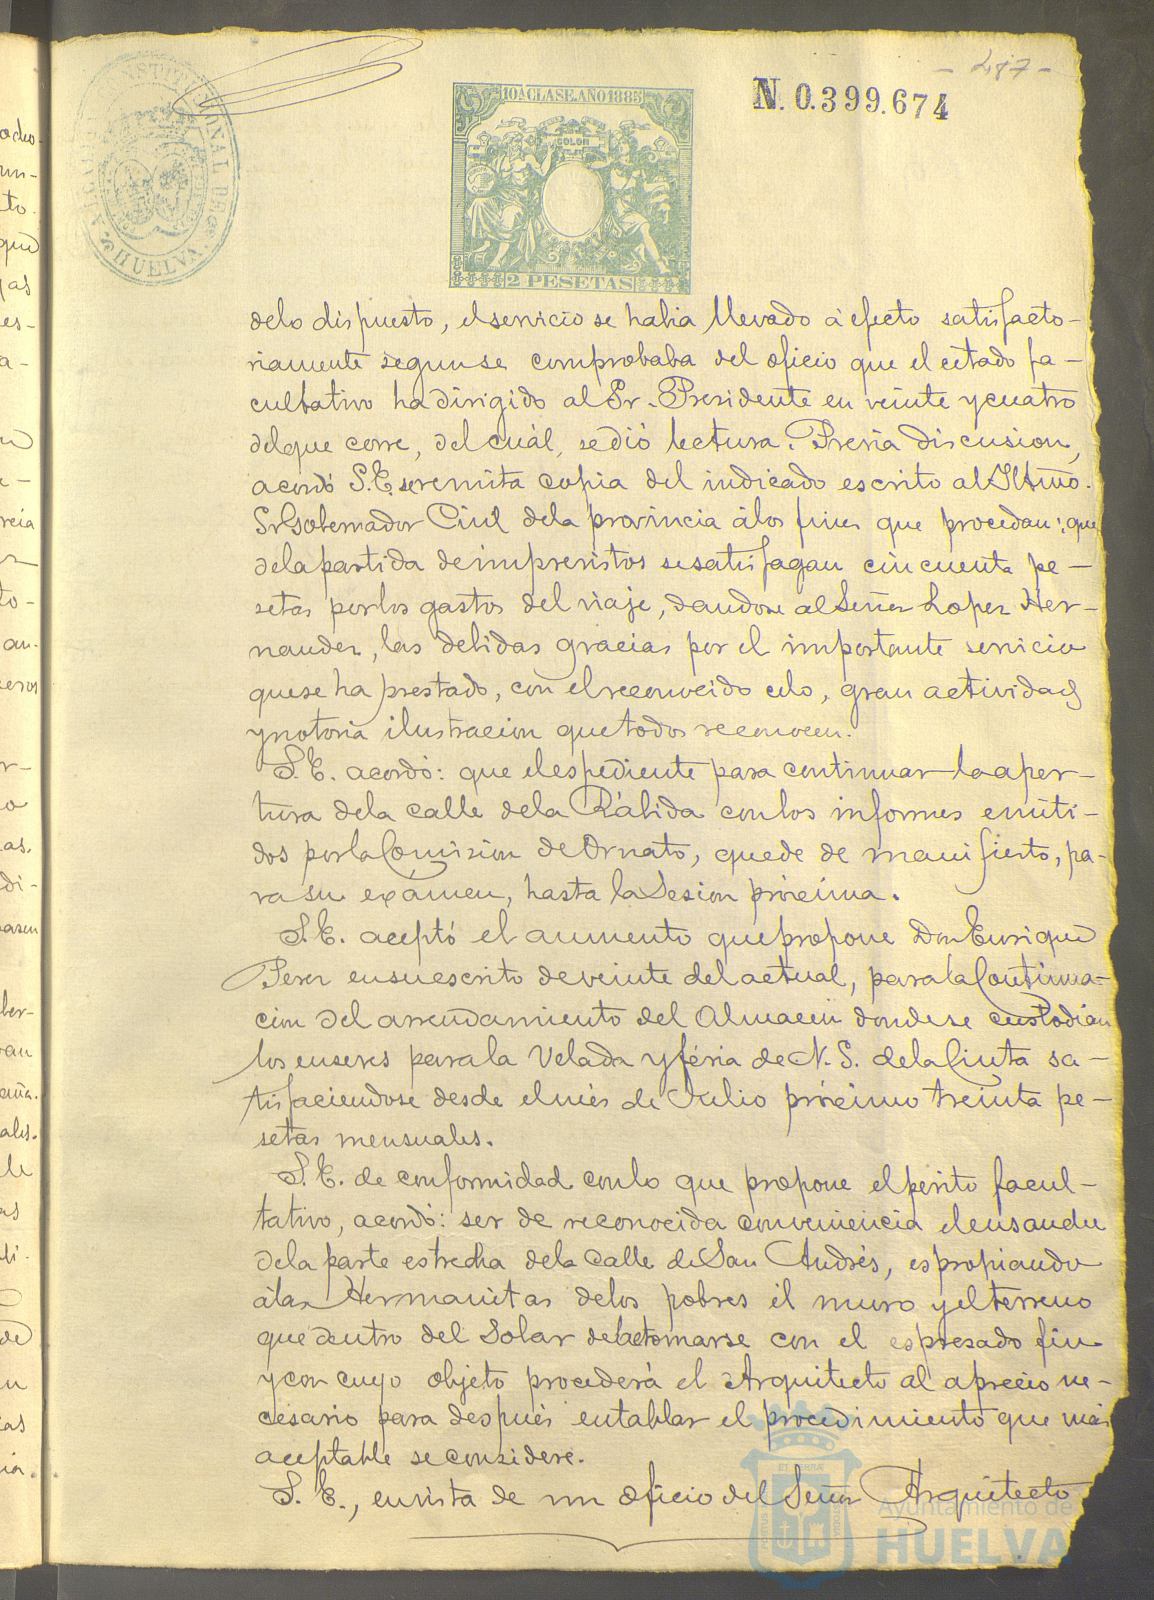 - 487 -
N. 0.399.674
10ª CLASE. AÑO 1885
COLON
2 PESETAS
HUELVA
delo dispuesto, el servicio se habia llevado á efecto satisfacto-
riamente segun se comprobaba del oficio que el citado fa-
cultativo ha dirigido al Sr. Presidente en veinte y cuatro
del que corre, del cuál, se dió lectura. Prévia discusion,
acordó S.E. se remita copia del indicado escrito al Iltmo.
Sr Gobernador Civil dela provincia álos fines que procedan; que
dela partida de imprevistos se satisfagan cincuenta pe-
setas por los gastos del viaje, dandose al Señor Lopez Her-
nandez, las debidas gracias por el importante servicio
que se ha prestado, con el reconocido celo, gran actividad
y notoria ilustracion que todos reconocen.
S.E. acordó: que el espediente para continuar la aper-
tura dela calle dela Rábida con los informes emiti-
dos por la Comision de Ornato, quede de manifiesto, pa-
ra su exámen, hasta la Sesion próxima.
S.E. aceptó el aumento que propone Don Enrique
Perez en su escrito de veinte del actual, para la Continua-
cion del arrendamiento del Almacen donde se custodian
los enseres para la Velada y féria de N. S. dela Cinta sa-
tisfaciendose desde el més de Julio próximo treinta pe-
setas mensuales.
S.E. de conformidad con lo que propone el périto facul-
tativo, acordó: ser de reconocida conveniencia el ensanche
dela parte estrecha dela calle de San Andrés, espropiando
á las Hermanitas delos pobres el muro y el terreno
que dentro del Solar debe tomarse con el espresado fin
y con cuyo objeto procederá el Arquitecto al aprecio ne-
cesario para después entablar el procedimiento que más
aceptable se considere.
S. E., en vista de un oficio del Señor Arquitecto
Ayuntamiento de
HUELVA